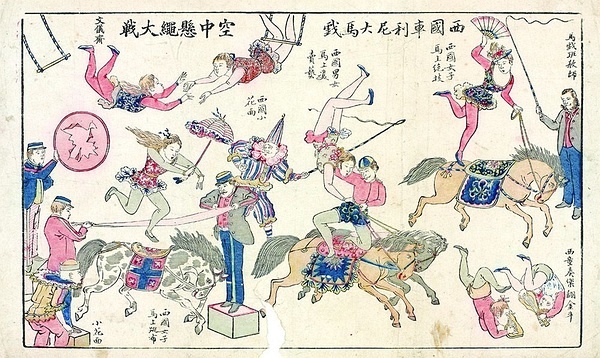 西國車利尼大馬戲
空中懸繩大戰
馬戲班教師
西國女子
馬上絕技
西國男女
馬上
賣藝
西國小
花面
文儀齋
西國女子
馬上跳布
小花面
西童奏樂翻金斗